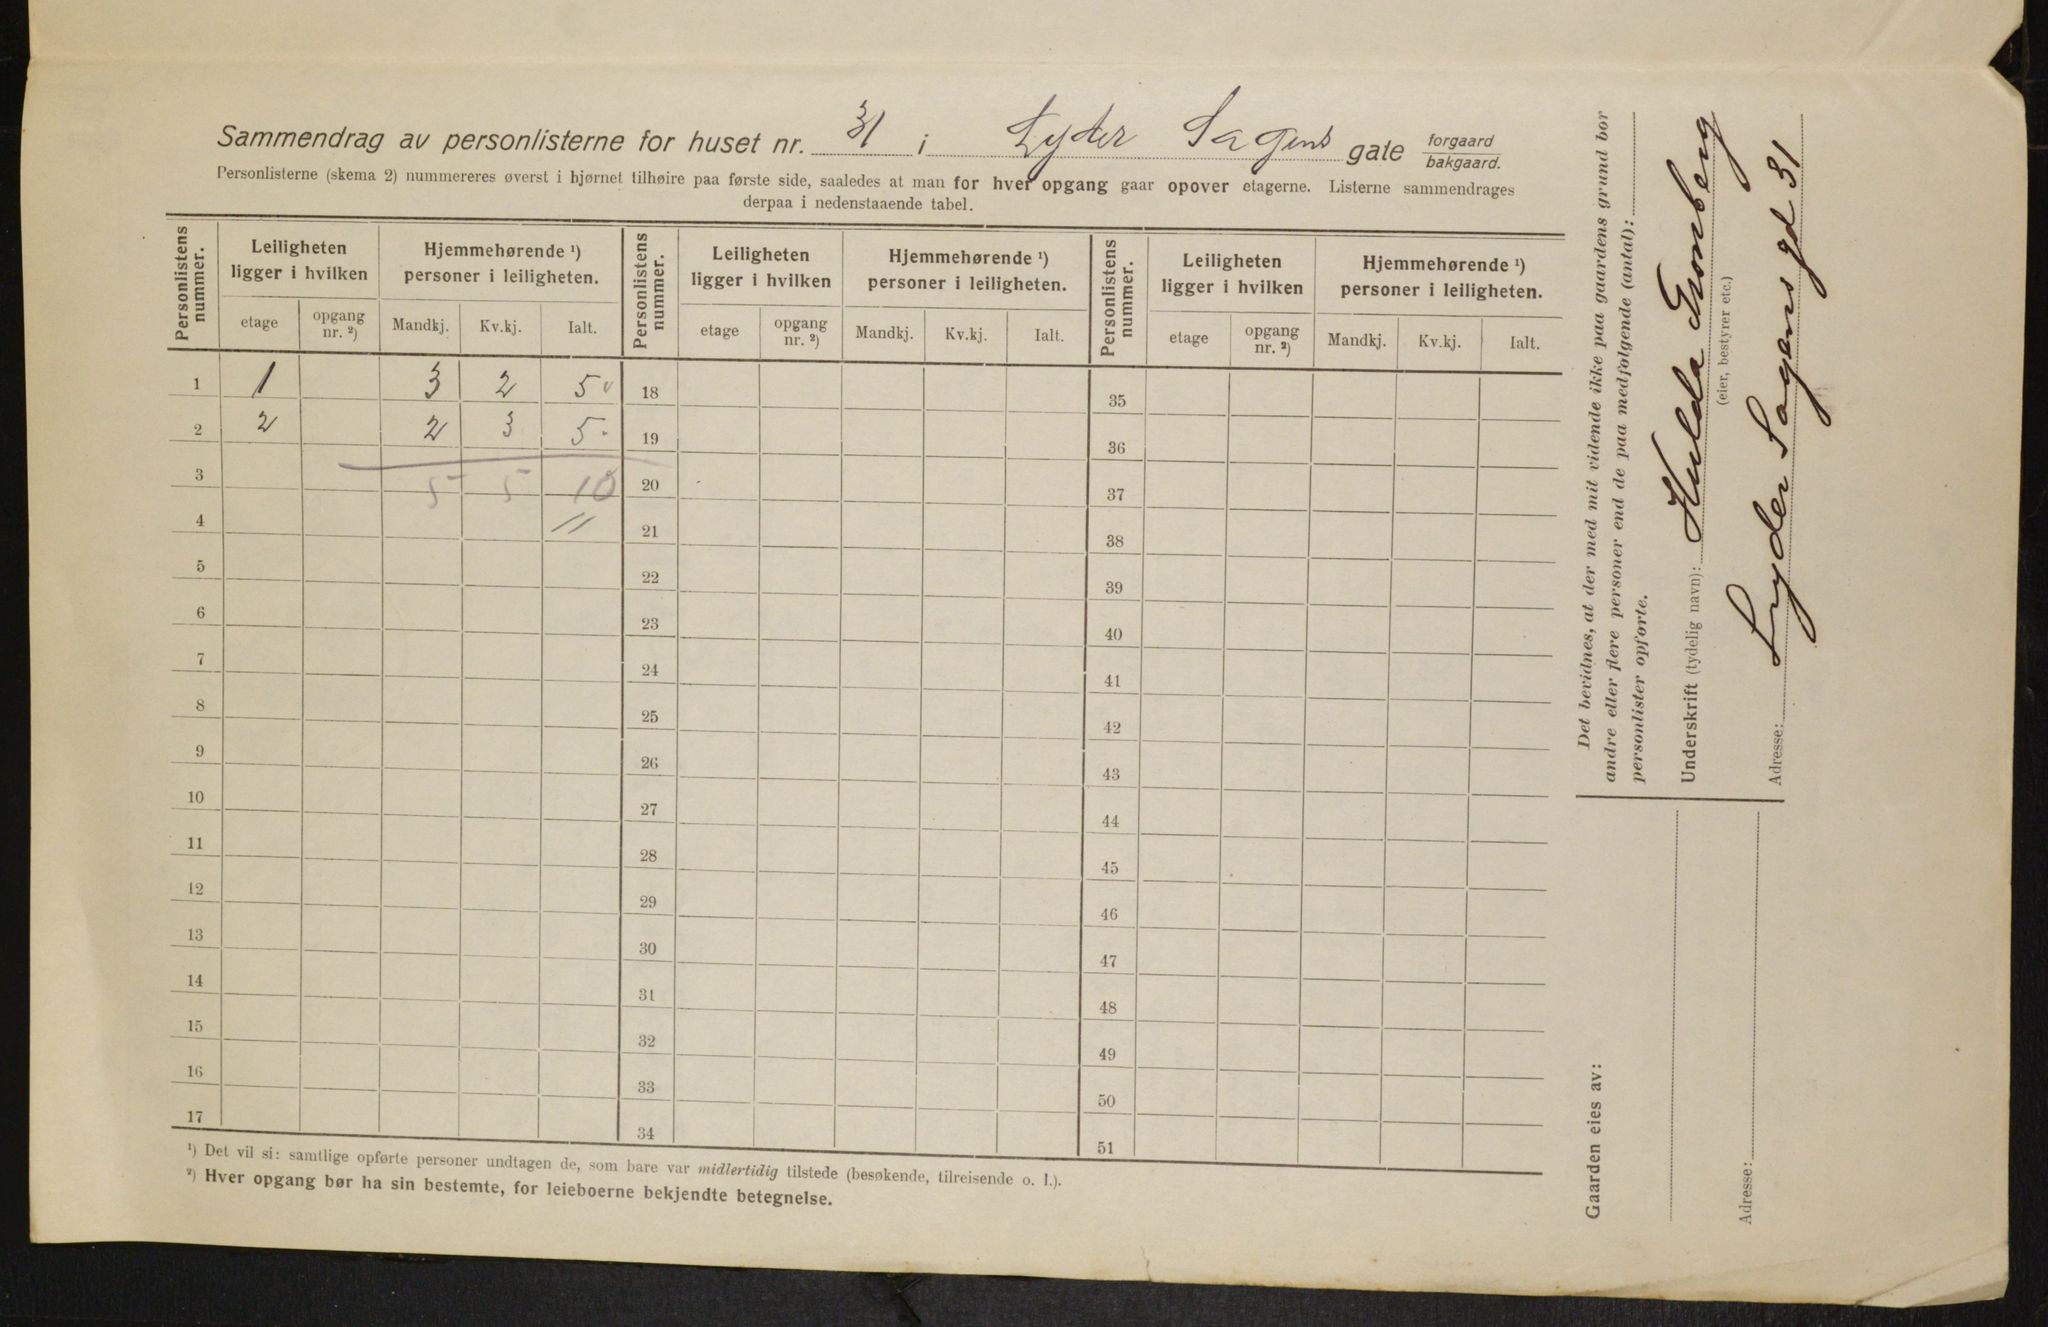 Sammendrag av personlisterne for huset nr. 31 i Lyder Sagens gate forgaard bakgaard.
Personlisterne (skema 2) nummereres øverst i hjørnet tilhøire paa første side, saaledes at man for hver opgang gaar opover etagerne. Listerne sammendrages
derpaa i nedenstaaende tabel.
Personlistens nummer. Leiligheten ligger i hvilken Hjemmehørende ¹) personer i leiligheten. Personlistens nummer. Leiligheten ligger i hvilken Hjemmehørende ¹) personer i leiligheten. Personlistens nummer. Leiligheten ligger i hvilken Hjemmehørende ¹) personer i leiligheten.
etage opgang nr. ²) Mandkj. Kv.kj. Ialt. etage opgang nr. ²) Mandkj. Kv.kj. Ialt. etage opgang nr. ²) Mandkj. Kv.kj. Ialt.
1 1 3 2 5 18 35
2 2 2 3 5 19 36
3 5 5 10 20 37
4 21 38
5 22 39
6 23 40
7 24 41
8 25 42
9 26 43
10 27 44
11 28 45
12 29 46
13 30 47
14 31 48
15 32 49
16 33 50
17 34 51
¹) Det vil si: samtlige opførte personer undtagen de, som bare var midlertidig tilstede (besøkende, tilreisende o. l.).
²) Hver opgang bør ha sin bestemte, for leieboerne bekjendte betegnelse.
Det bevidnes, at der med mit vidende ikke paa gaardens grund bor
andre eller flere personer end de paa medfølgende (antal):
personlister opførte.
Underskrift (tydelig navn): Hulda Tromberg
(eier, bestyrer etc.)
Adresse: Lyder Sagens gd 31
Gaarden eies av:
Adresse: